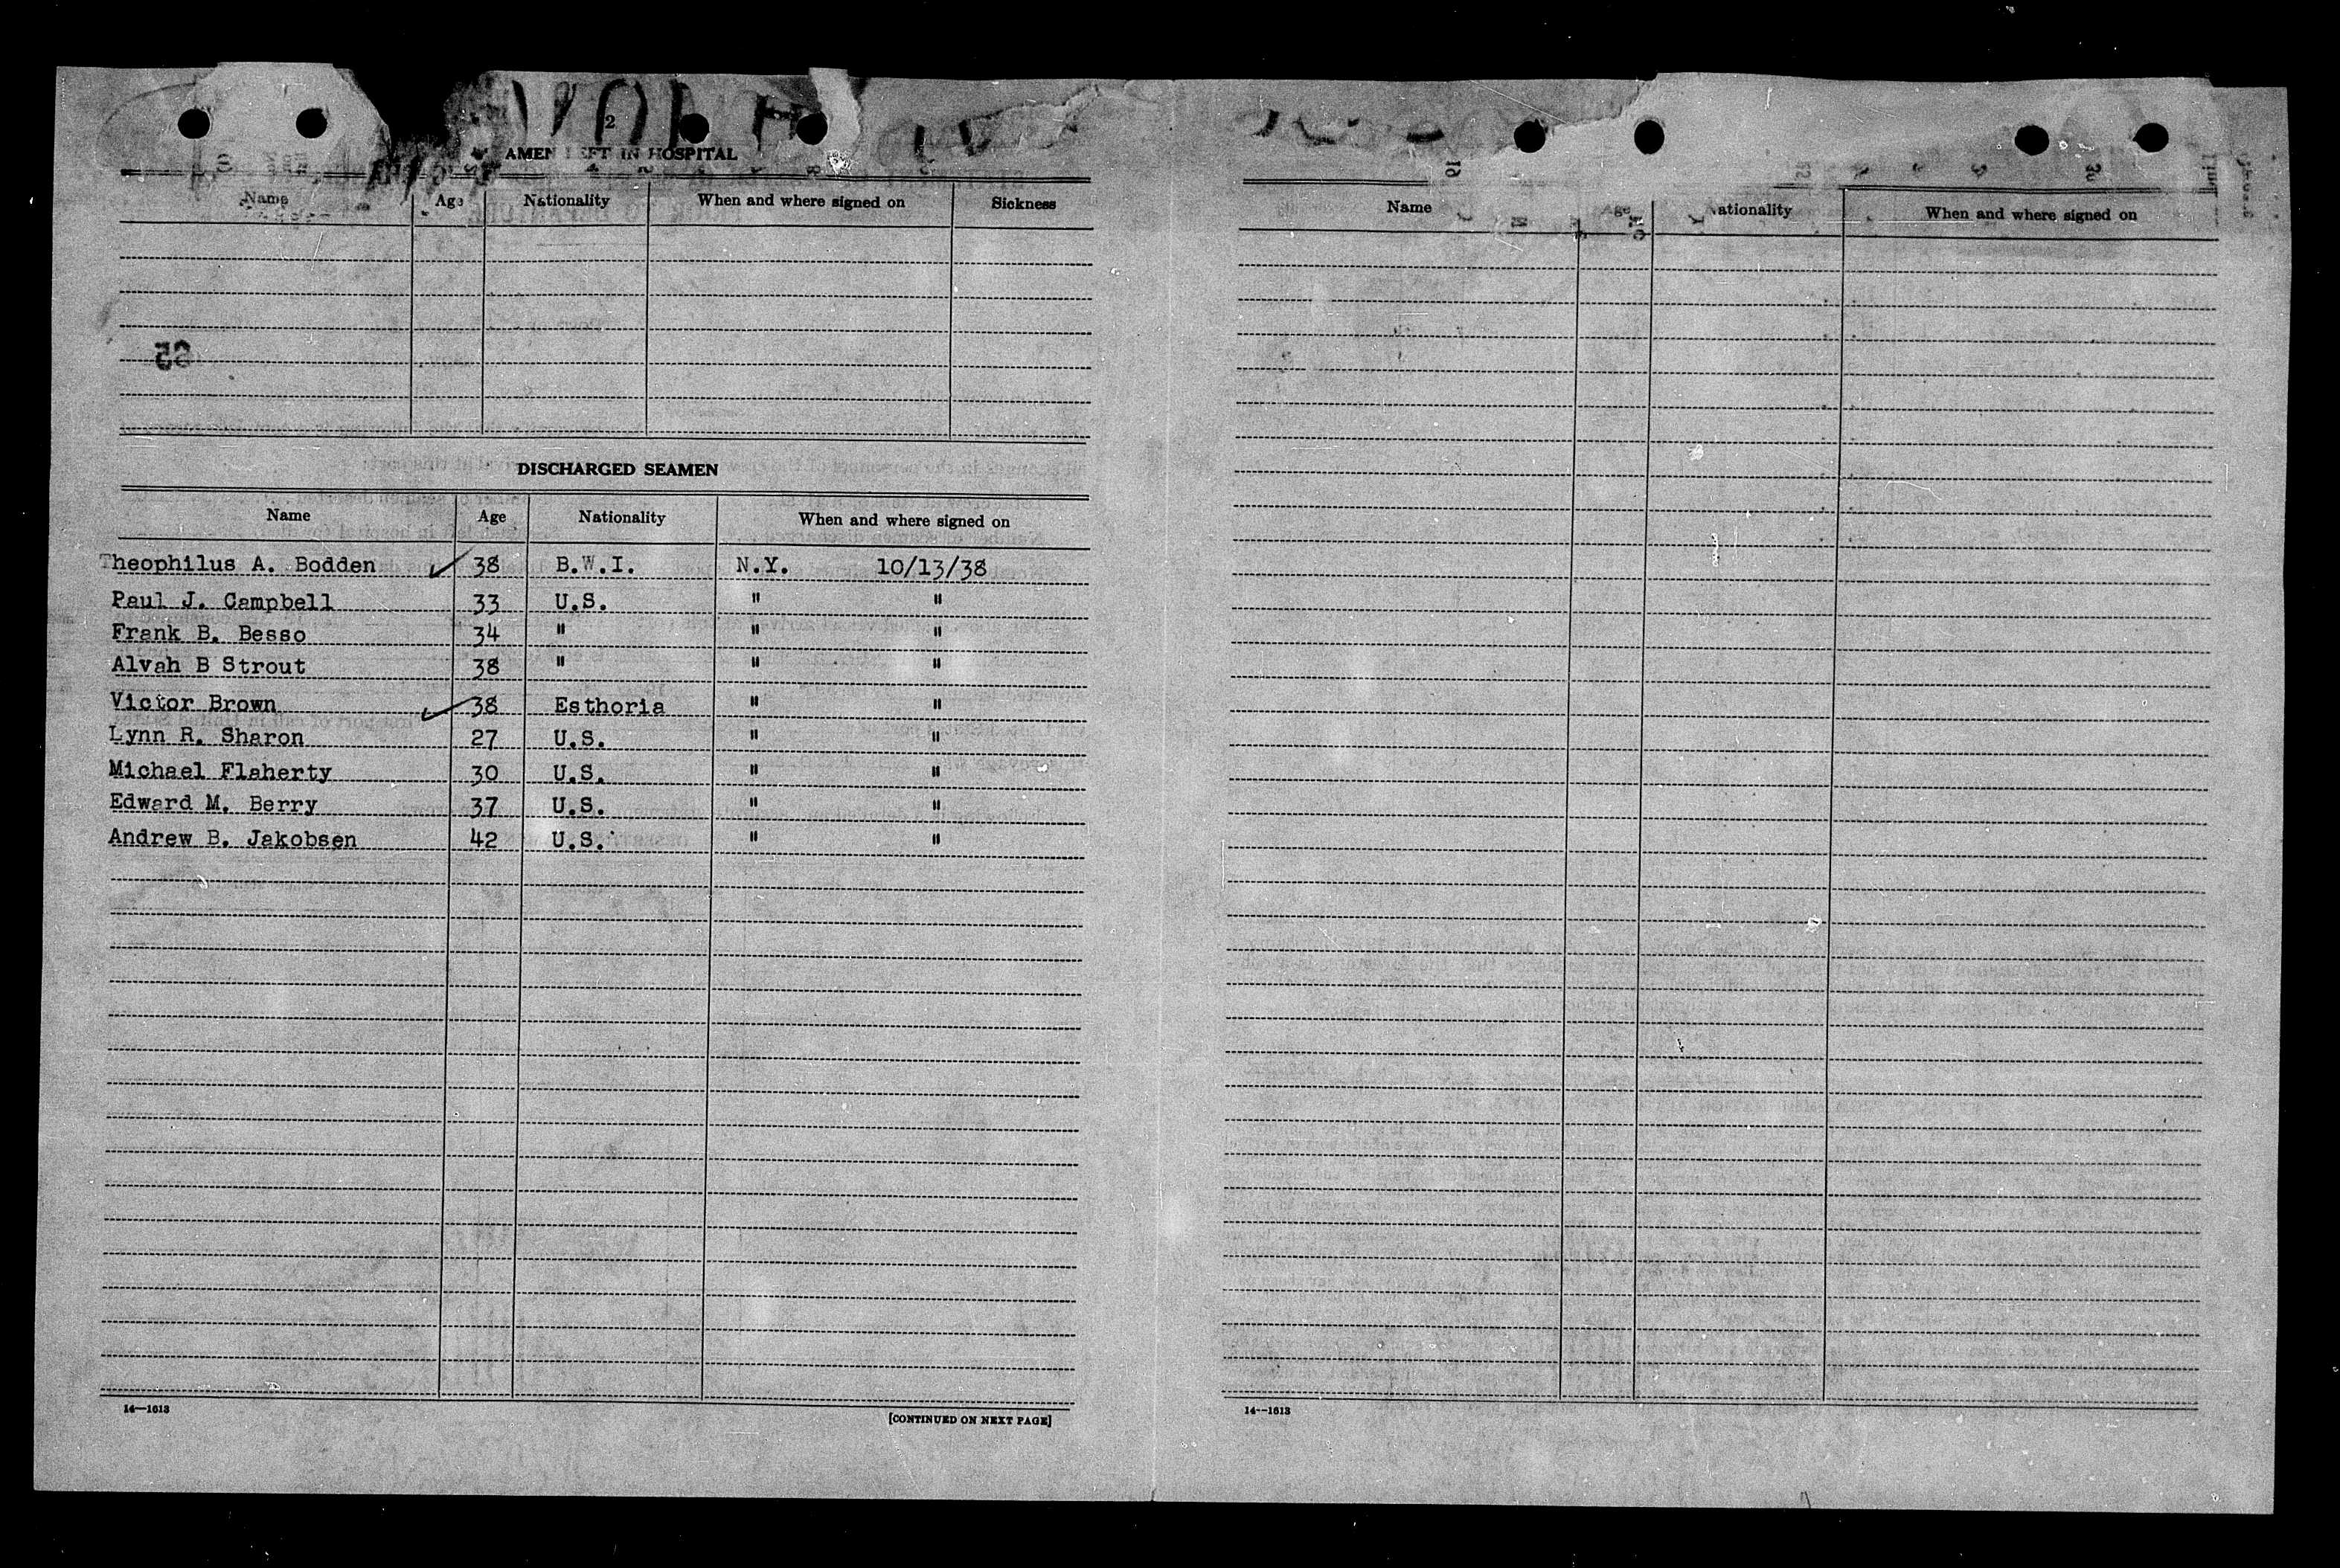 2
AMEN LEFT IN HOSPITAL
Name Age Nationality When and where signed on Sickness
DISCHARGED SEAMEN
Name Age Nationality When and where signed on
Theophilus A. Bodden 38 B.W.I. N.Y. 10/13/38
Paul J. Campbell 33 U.S. " "
Frank B. Besso 34 " " "
Alvah B Strout 38 " " "
Victor Brown 38 Esthoria " "
Lynn R. Sharon 27 U.S. " "
Michael Flaherty 30 U.S. " "
Edward M. Berry 37 U.S. " "
Andrew B. Jakobsen 42 U.S. " "
14—1613
[CONTINUED ON NEXT PAGE]
Name Age ationality When and where signed on
14--1613